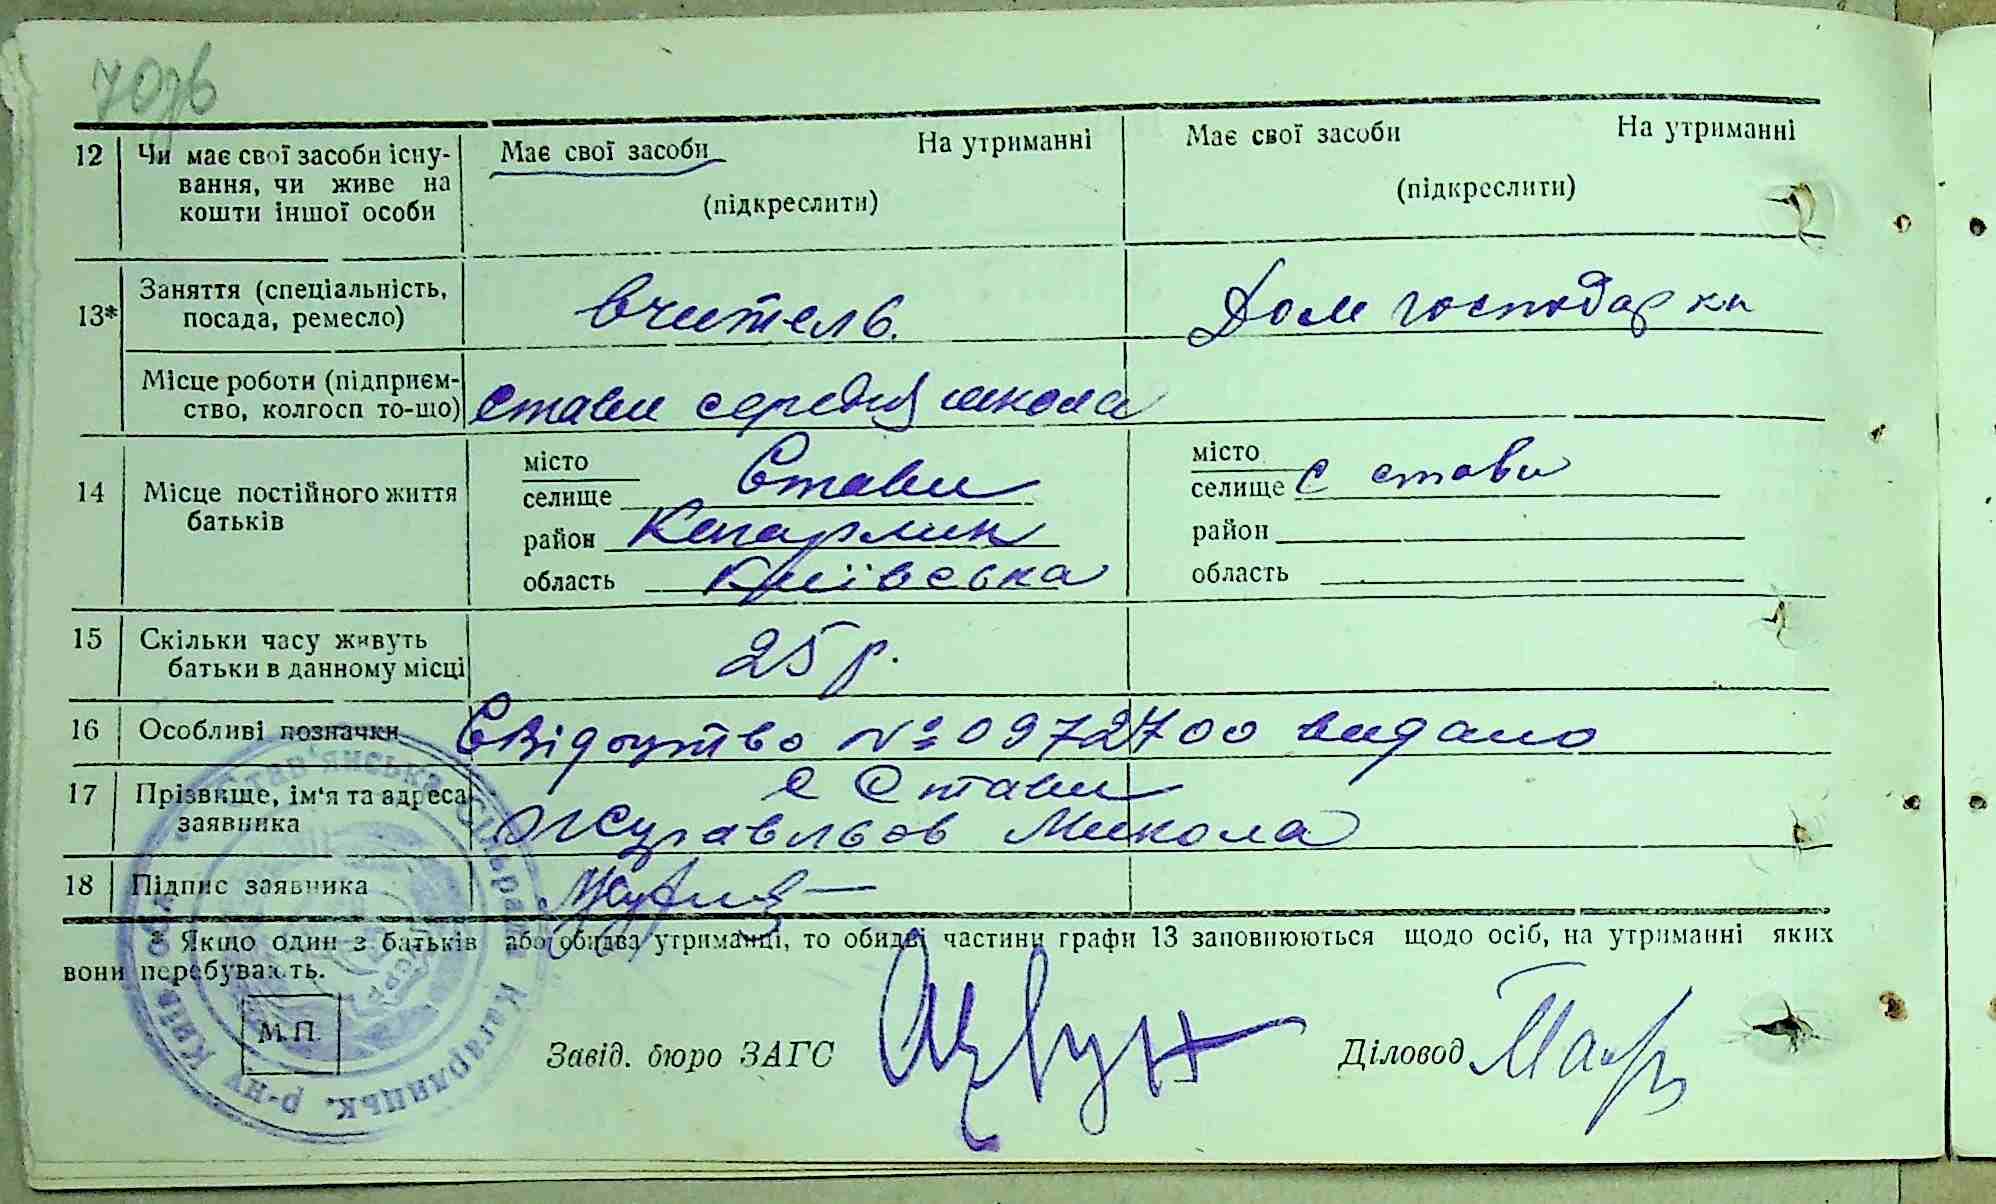 70зв
12 Чи має свої засоби існу- Має свої засоби На утриманні Має свої засоби На утриманні
вання, чи живе на
кошти іншої особи (підкреслити) (підкреслити)
13* Заняття (спеціальність, вчитель. Дом господарки
посада, ремесло)
Місце роботи (підприєм- Стави середня школа
ство, колгосп то-що)
14 Місце постійного життя місто Стави місто с стави
батьків селище селище
район Кагарлик район
область Київська область
15 Скільки часу живуть 25 р.
батьки в данному місці
16 Особливі позначки Свідоцтво № 0972700 видано
17 Прізвище, ім'я та адреса с Стави
заявника Журавльов Микола
18 Підпис заявника
* Якщо один з батьків або обидва утриманці, то обидві частини графи 13 заповнюються щодо осіб, на утриманні яких
вони перебувають.
М.П.
Завід. бюро ЗАГС Діловод
Став'янська сільрада Кагарлицьк. р-ну Київ.
УСРР